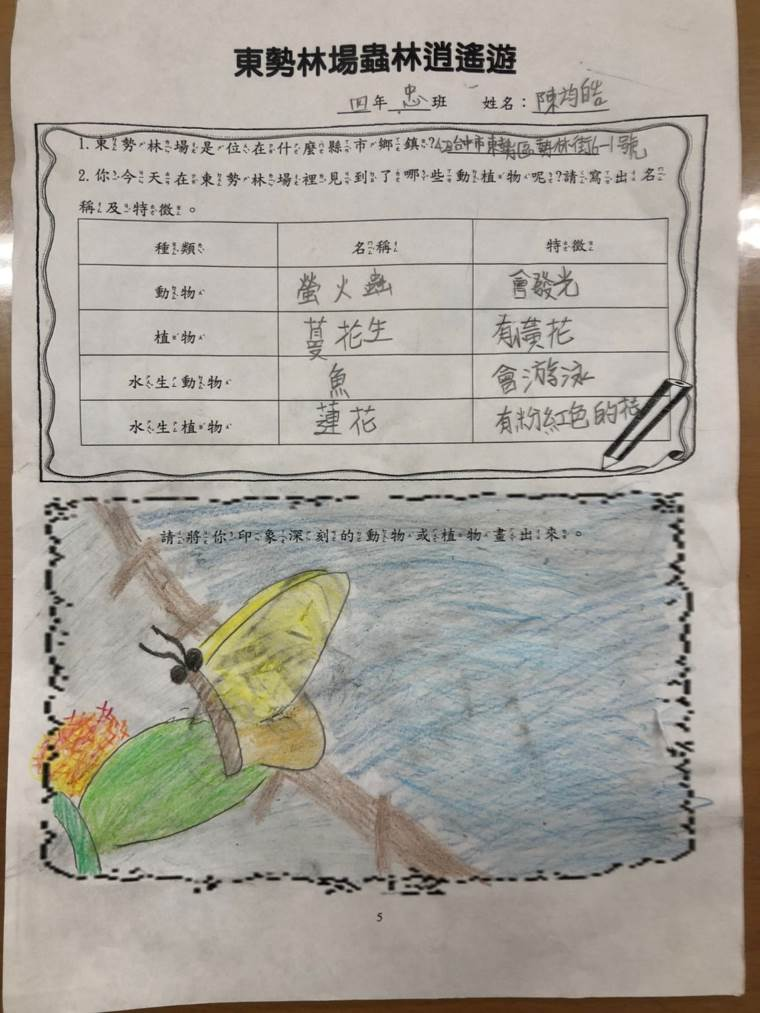 東勢林場蟲林逍遙遊
四年忠班 姓名：陳均皓
1.東勢林場是位在什麼縣市鄉鎮?台中市東勢區勢林街6-1號
2.你今天在東勢林場裡見到了哪些動植物呢?請寫出名
稱及特徵。
種類 名稱 特徵
動物 螢火蟲 會發光
植物 蔓花生 有黃花
水生動物 魚 會游泳
水生植物 蓮花 有粉紅色的花
請將你印象深刻的動物或植物畫出來。
5